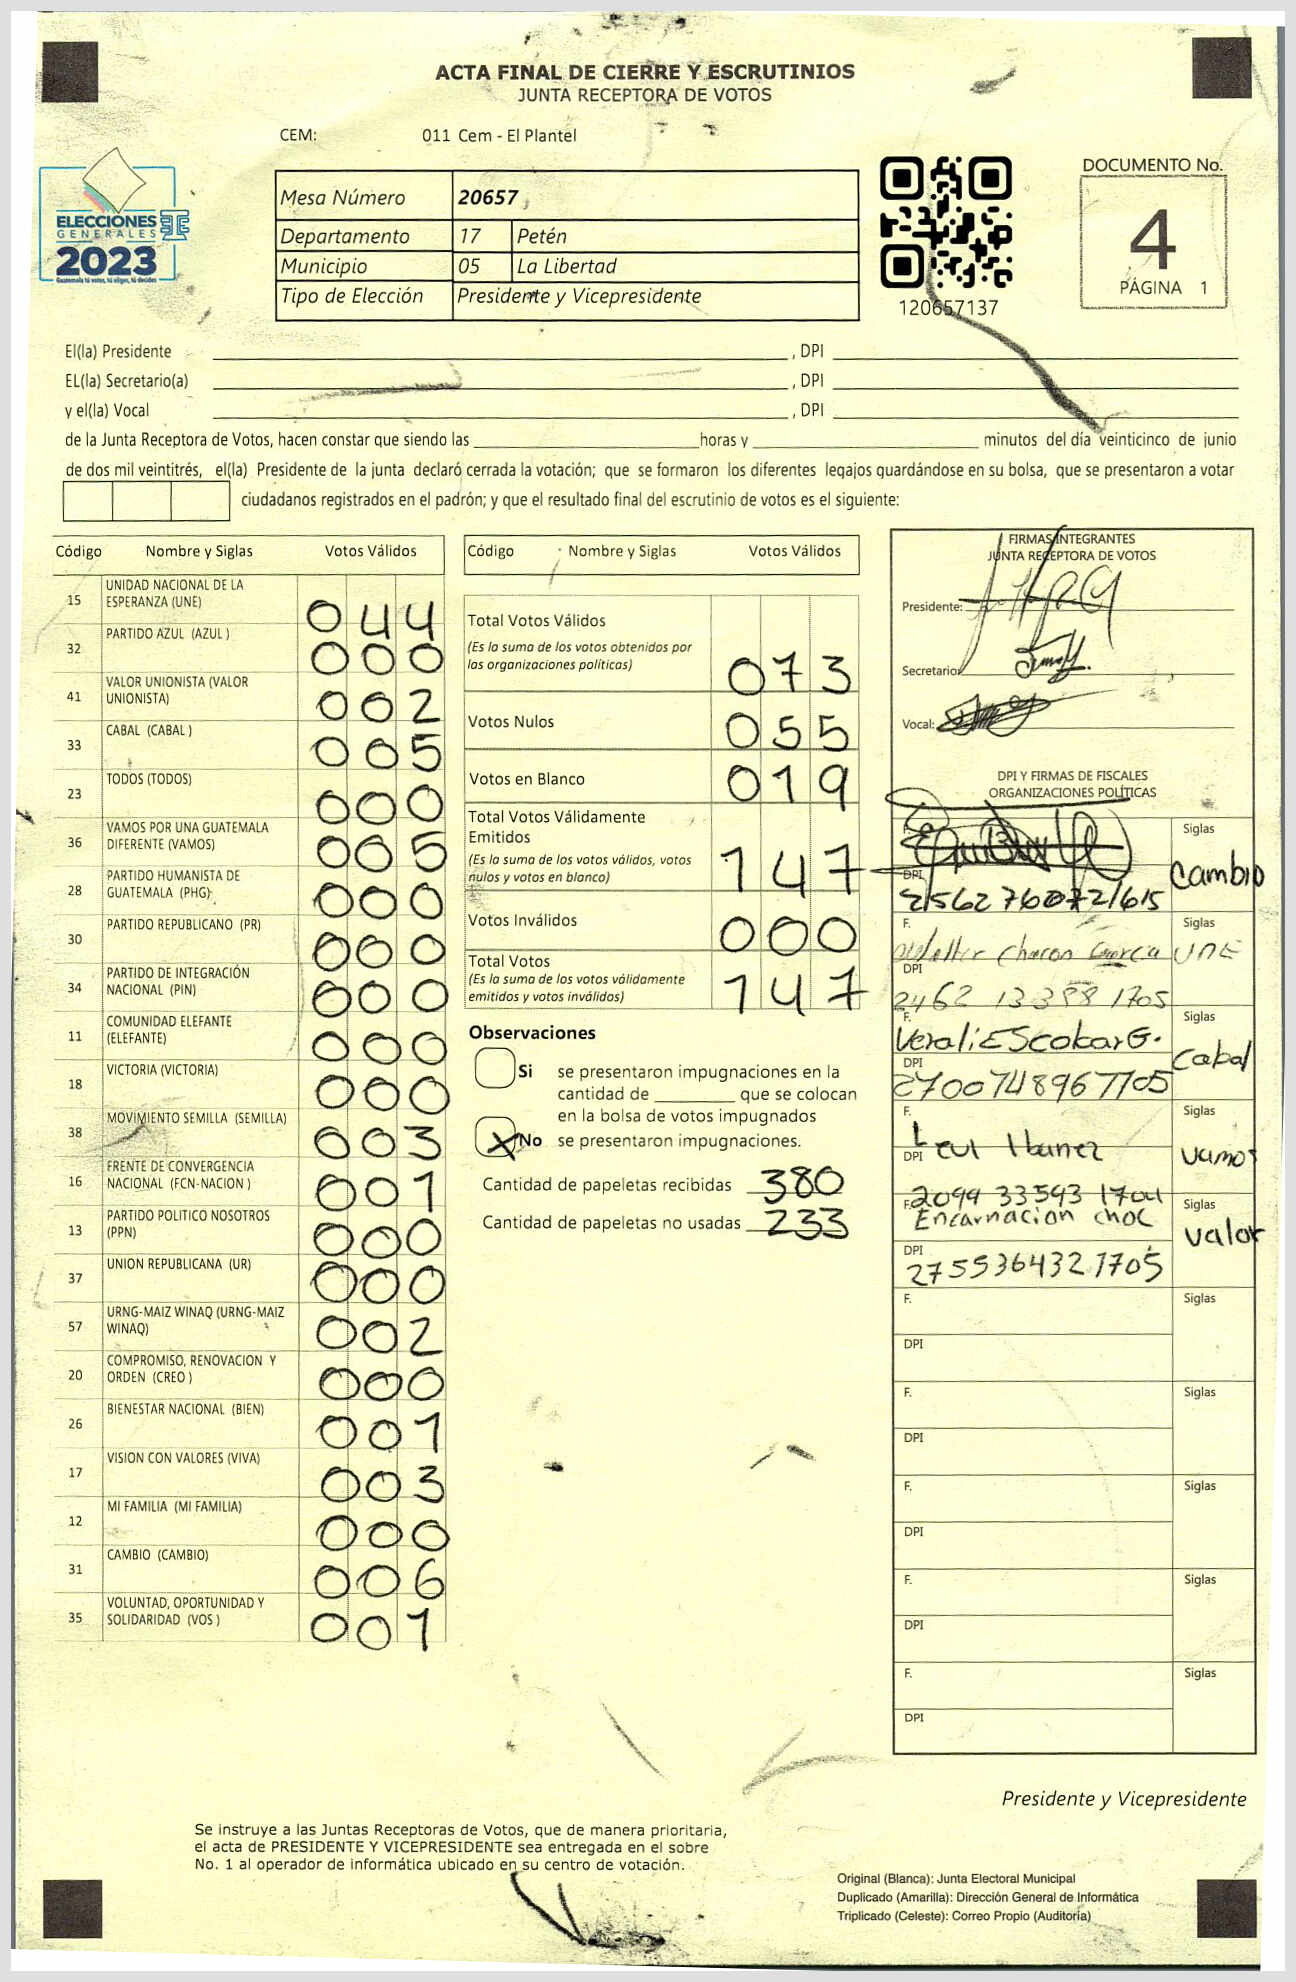 ACTA FINAL DE CIERRE Y ESCRUTINIOS
JUNTA RECEPTORA DE VOTOS
CEM: 011 Cem - El Plantel
ELECCIONES
GENERALES
2023
Guatemala tú votas, tú eliges, tú decides
Mesa Número 20657
Departamento 17 Petén
Municipio 05 La Libertad
Tipo de Elección Presidente y Vicepresidente
120657137
DOCUMENTO No.
4
PÁGINA 1
El(la) Presidente , DPI
EL(la) Secretario(a) , DPI
y el(la) Vocal , DPI
de la Junta Receptora de Votos, hacen constar que siendo las horas y minutos del día veinticinco de junio
de dos mil veintitrés, el(la) Presidente de la junta declaró cerrada la votación; que se formaron los diferentes legajos guardándose en su bolsa, que se presentaron a votar
ciudadanos registrados en el padrón; y que el resultado final del escrutinio de votos es el siguiente:
Código Nombre y Siglas Votos Válidos
15 UNIDAD NACIONAL DE LA
ESPERANZA (UNE) 044
32 PARTIDO AZUL (AZUL ) 000
41 VALOR UNIONISTA (VALOR
UNIONISTA) 002
33 CABAL (CABAL ) 005
23 TODOS (TODOS) 000
36 VAMOS POR UNA GUATEMALA
DIFERENTE (VAMOS) 005
28 PARTIDO HUMANISTA DE
GUATEMALA (PHG) 000
30 PARTIDO REPUBLICANO (PR) 000
34 PARTIDO DE INTEGRACIÓN
NACIONAL (PIN) 000
11 COMUNIDAD ELEFANTE
(ELEFANTE) 000
18 VICTORIA (VICTORIA) 000
38 MOVIMIENTO SEMILLA (SEMILLA) 003
16 FRENTE DE CONVERGENCIA
NACIONAL (FCN-NACION ) 001
13 PARTIDO POLITICO NOSOTROS
(PPN) 000
37 UNION REPUBLICANA (UR) 000
57 URNG-MAIZ WINAQ (URNG-MAIZ
WINAQ) 002
20 COMPROMISO, RENOVACION Y
ORDEN (CREO ) 000
26 BIENESTAR NACIONAL (BIEN) 001
17 VISION CON VALORES (VIVA) 003
12 MI FAMILIA (MI FAMILIA) 000
31 CAMBIO (CAMBIO) 006
35 VOLUNTAD, OPORTUNIDAD Y
SOLIDARIDAD (VOS ) 001
Código Nombre y Siglas Votos Válidos
Total Votos Válidos
(Es la suma de los votos obtenidos por
las organizaciones políticas) 073
Votos Nulos 055
Votos en Blanco 019
Total Votos Válidamente
Emitidos
(Es la suma de los votos válidos, votos
nulos y votos en blanco) 147
Votos Inválidos 000
Total Votos
(Es la suma de los votos válidamente
emitidos y votos inválidos) 147
Observaciones
Si se presentaron impugnaciones en la
cantidad de que se colocan
en la bolsa de votos impugnados
X No se presentaron impugnaciones.
Cantidad de papeletas recibidas 380
Cantidad de papeletas no usadas 233
FIRMAS INTEGRANTES
JUNTA RECEPTORA DE VOTOS
Presidente:
Secretario:
Vocal:
DPI Y FIRMAS DE FISCALES
ORGANIZACIONES POLÍTICAS
F. Siglas
Cambio
DPI
F. Siglas
Chacon Garcia UNE
DPI
2462 13388 1705
F. Siglas
Verali Escobar G. Cabal
DPI
2700748967705
F. Siglas
Ibanez Vamos
DPI
2099 33593 1704
F. Encarnacion choc Siglas
valor
DPI
2755364321705
F. Siglas
DPI
F. Siglas
DPI
F. Siglas
DPI
F. Siglas
DPI
F. Siglas
DPI
Presidente y Vicepresidente
Se instruye a las Juntas Receptoras de Votos, que de manera prioritaria,
el acta de PRESIDENTE Y VICEPRESIDENTE sea entregada en el sobre
No. 1 al operador de informática ubicado en su centro de votación.
Original (Blanca): Junta Electoral Municipal
Duplicado (Amarilla): Dirección General de Informática
Triplicado (Celeste): Correo Propio (Auditoría)